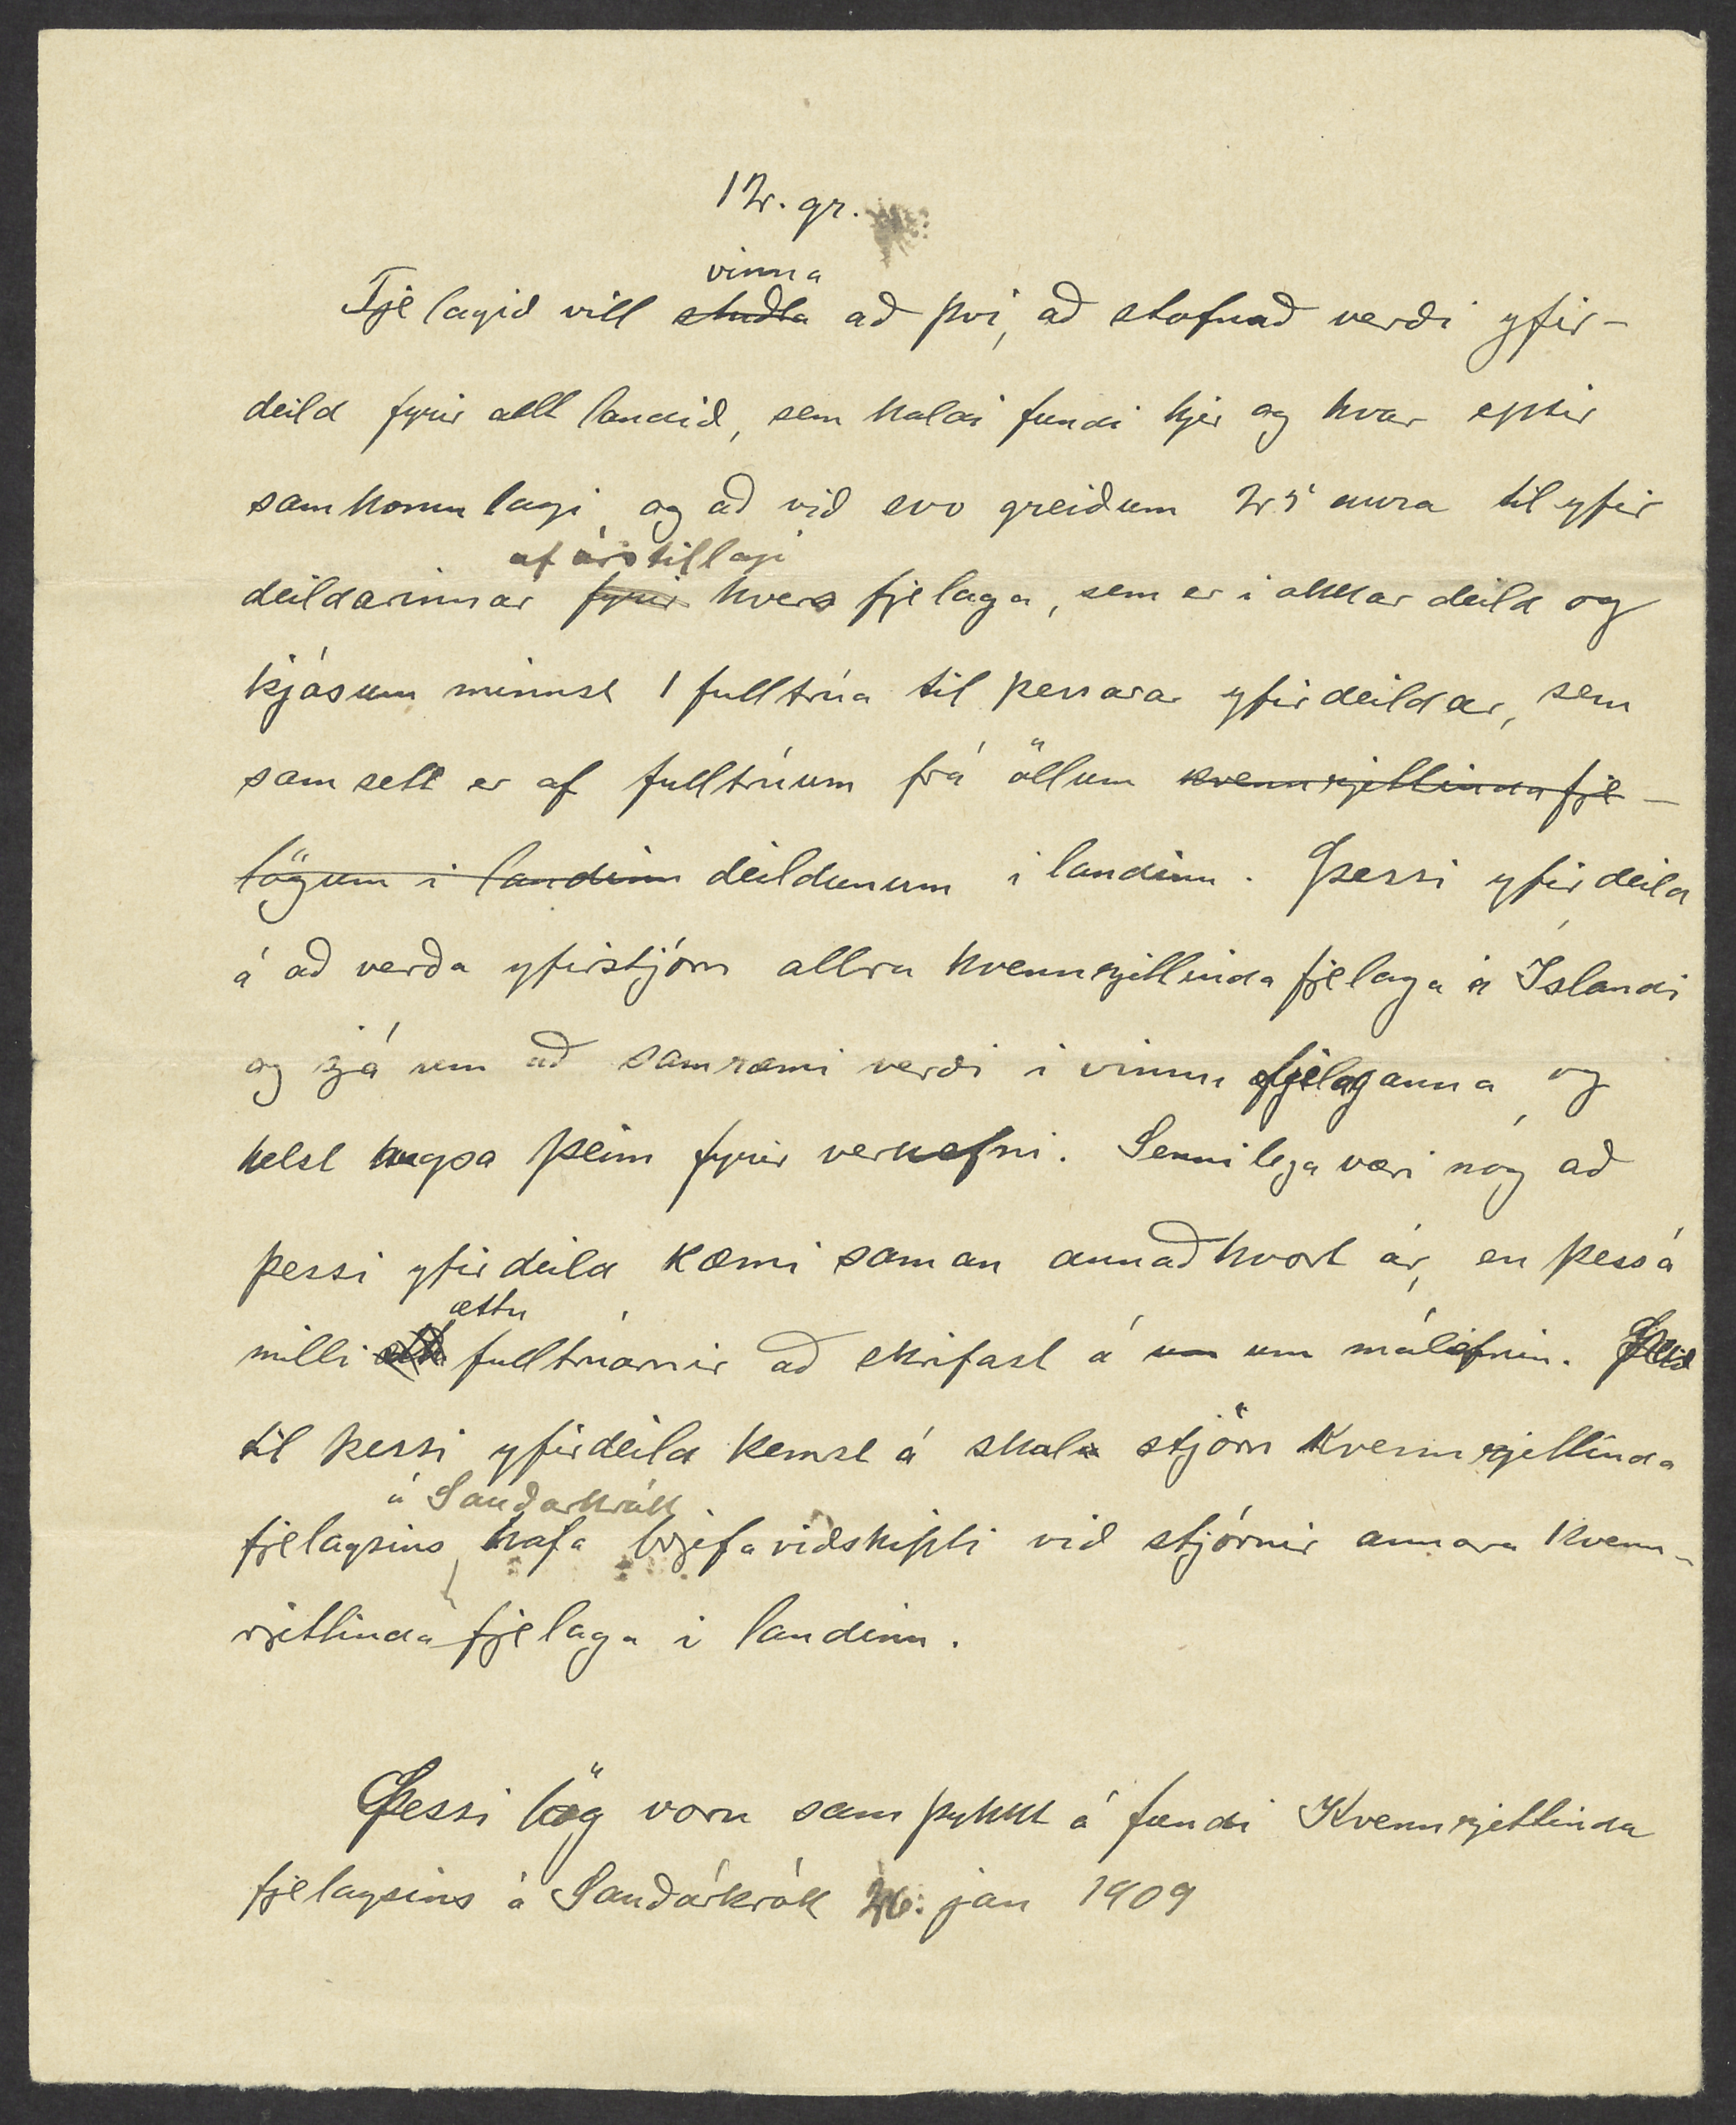 12. gr.
vinna
Fjelagið vill studla að því, að stofnað verði yfir-
deild fyrir allt landið, sem haldi fundi hjer og hvar eptir
samkomulagi, og að við svo greiðum 25 aura til yfir
af árstillagi
deildarinnar fyrir hvers fjelaga, sem er i okkar deild og
kjósum minnst 1 fulltrúa til þessarar yfirdeildar, sem
samsett er af fulltrúum frá öllum kvennrjettindafje-
lögum i landinu deildunum i landinu. Þessi yfirdeild
á að verða yfirstjórn allra kvennrjettinda fjelaga á Íslandi
og sjá um að samræmi verði i vinnu fjelaganna, og
helst hugsa þeim fyrir verkefni. Sennilega væri nóg að
þessi yfirdeild kæmi saman annaðhvort ár, en þess á
ættu
milli fulltrúarnir að skrifast á um um málefnin.
til þessi yfirdeild kemst á skal stjórn Kvennrjettinda
á Sauðarkrók
fjelagsins, hafa brjefaviðskipti við stjórnir annara kvenn-
rjettinda fjelaga i landinu.
Þessi lög voru samþykkt á fundi Kvennrjettinda
fjelagsins á Sauðárkrók 26. jan 1909